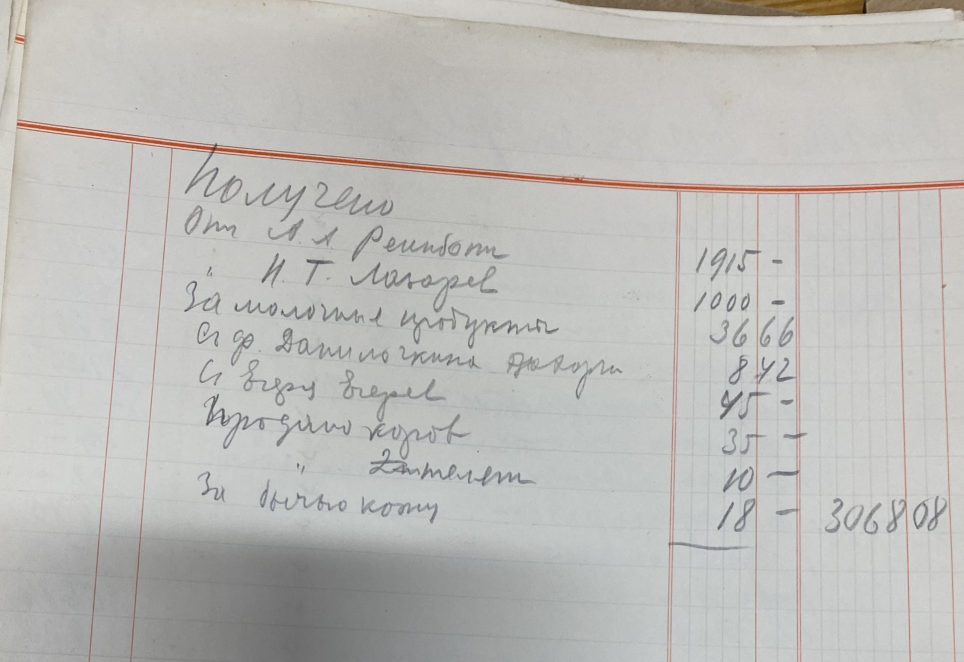 Получено
От А. А. Реинбот 1915 -
" Н. Т. Лазарев 1000 -
За молочные продукты 36 66
Данилочкина 8 42
45 -
Продано коров 35 -
" телят 10 -
За бычью кожу 18 - 3068 08